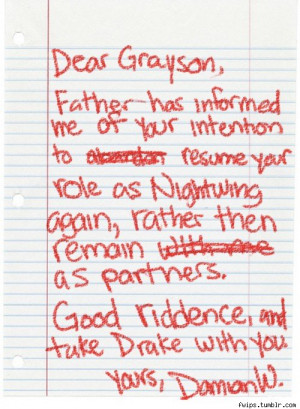 Dear Grayson,
Father has informed
me of your intention
to abandon resume your
role as Nightwing
again, rather then
remain with me
as partners.
Good riddence, and
take Drake with you.
Yours, Damian W.
fwips.tumblr.com